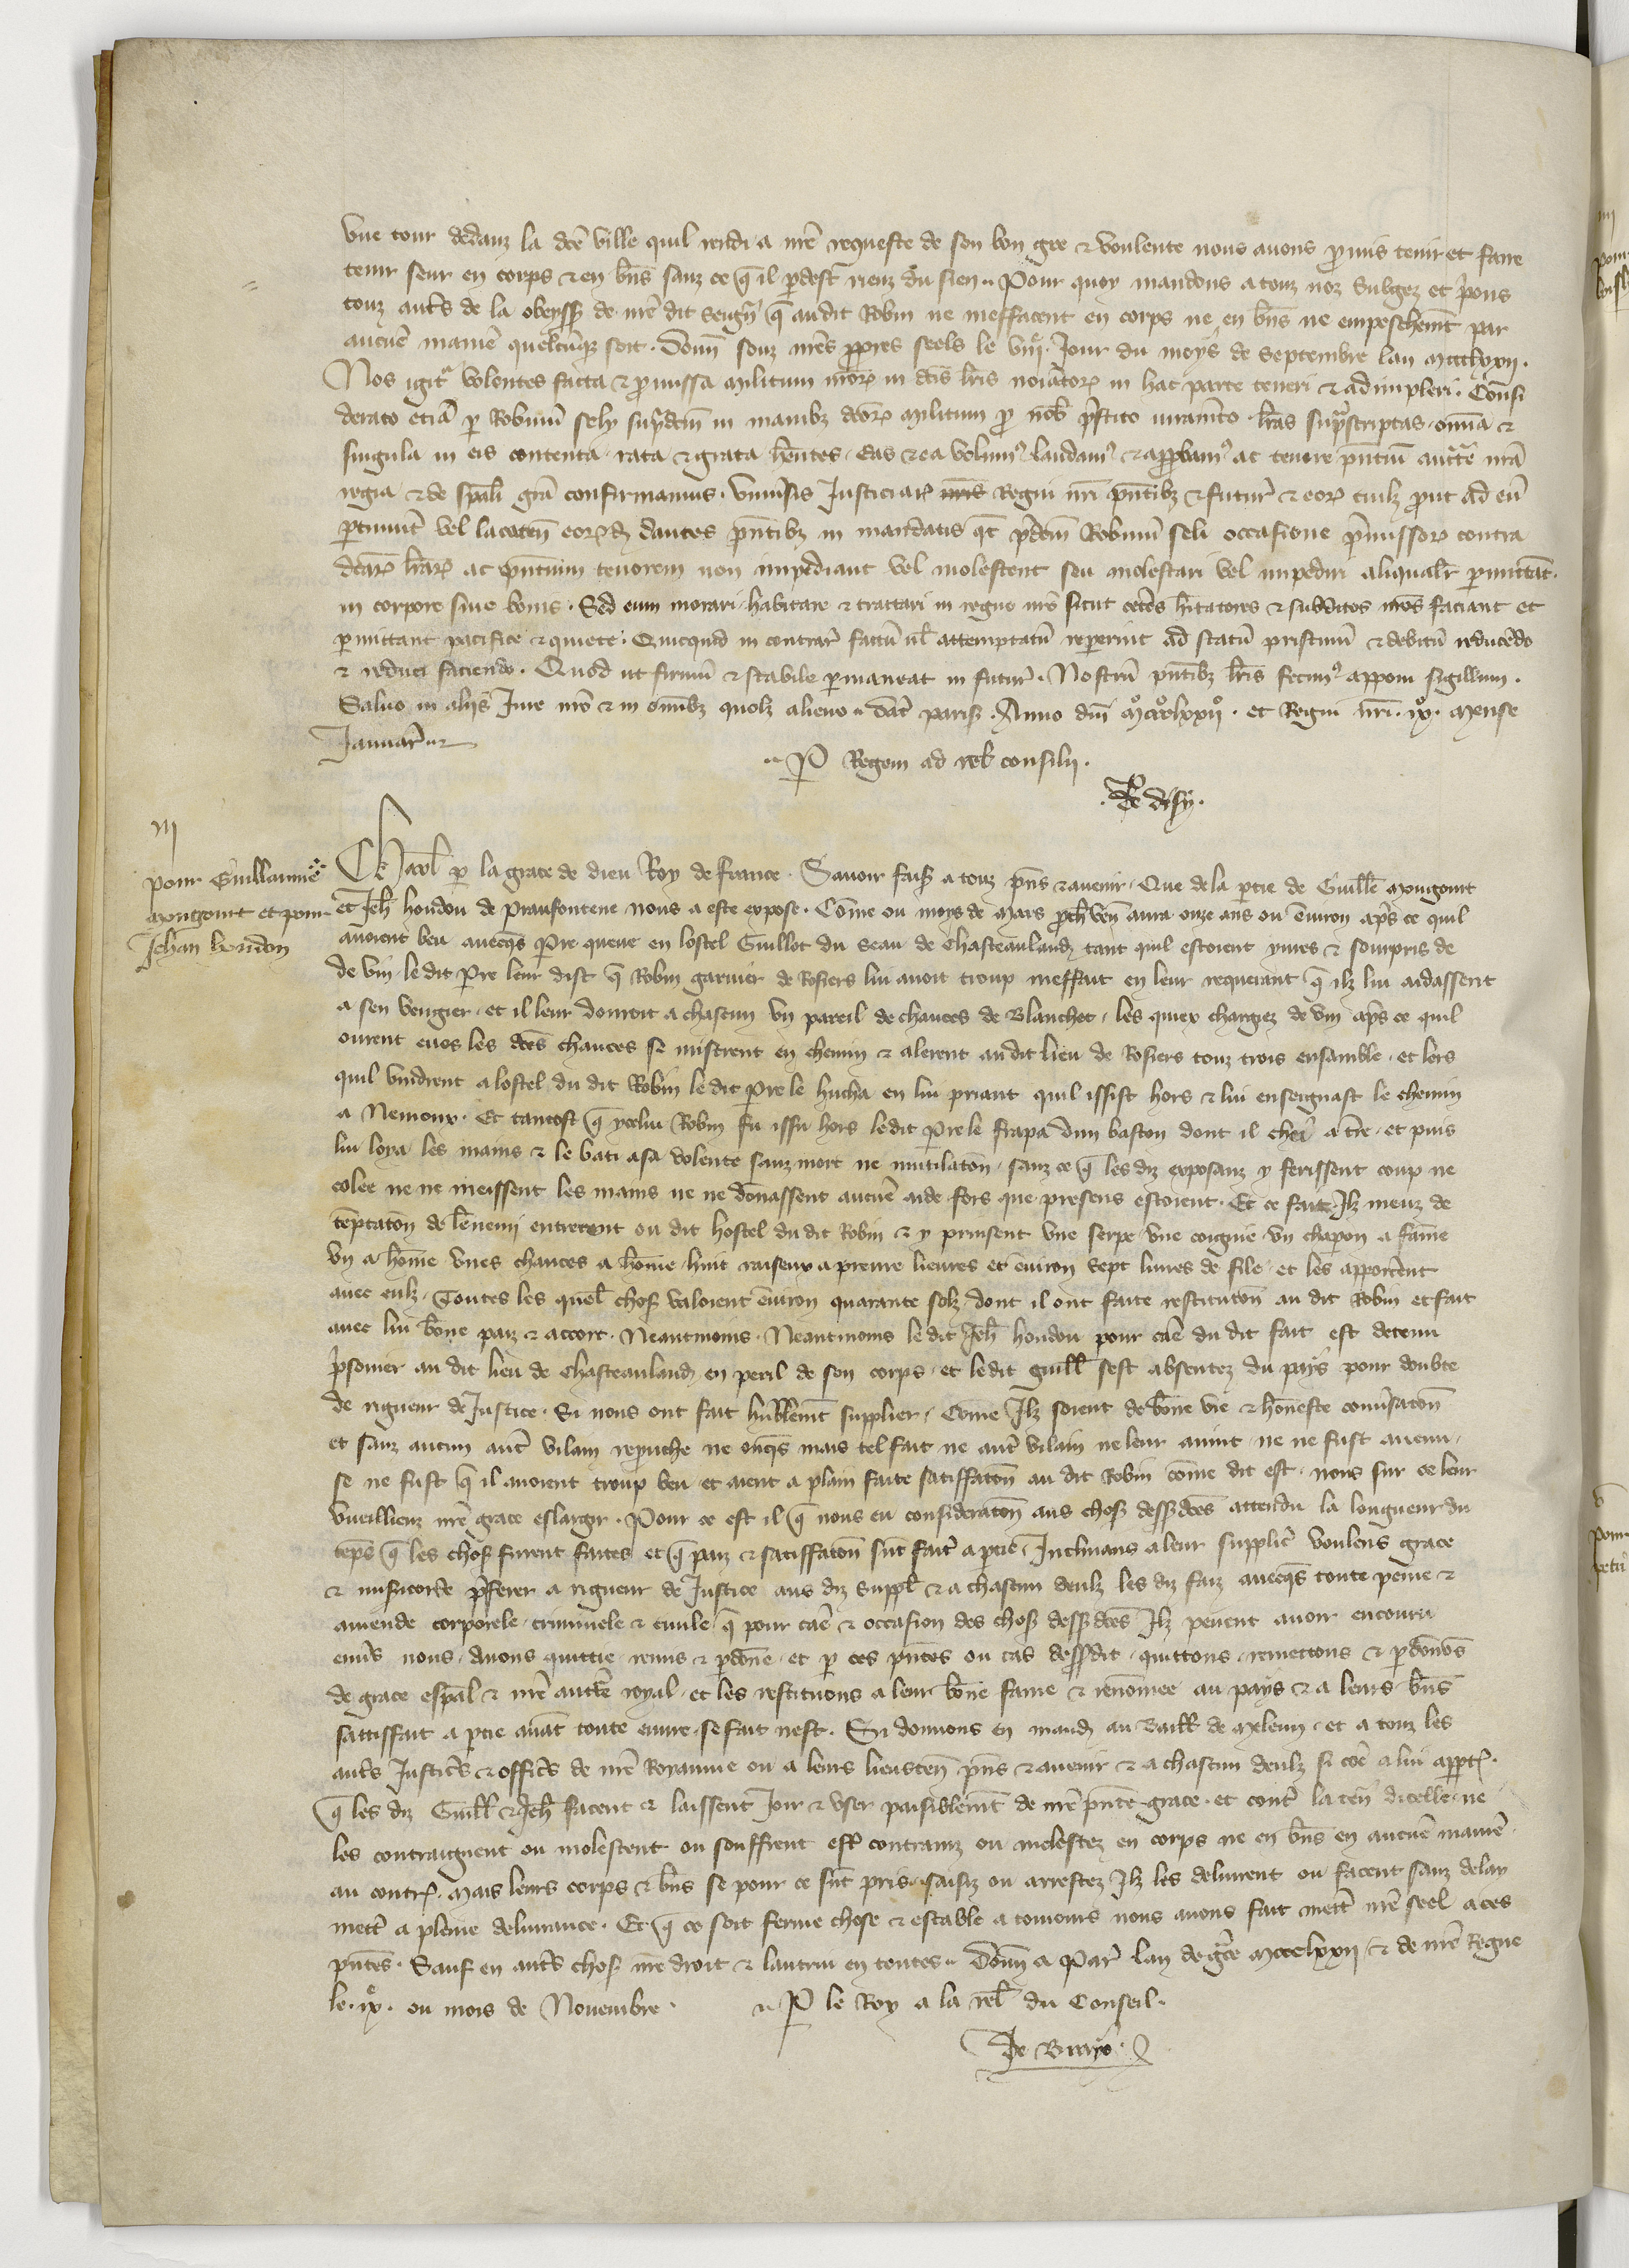 vne tour dedanz la dce ville quil rendi a nre requeste de son bon gre & voulente nous auons promis tenir et faire
tenir seur en corps & en bns sanz ce q il perdest rienz du sien. Pour quoy mandons a touz noz subgez et prions
touz autres de la obeyss de nre dit seigneur q audit Robin ne meffacent en corps ne en bns ne empeschent par
aucune maniere quelcunque soit. Donn souz nres propres seels le viije Jour du moys de Septembre lan mccclxxij.
Nos igitur volentes facta & promissa militum nrorum in dcis lris noiatorum in hac parte teneri & adimpleri. Consi
derato etia per Robinu sely supradcm in manibz dcorum militum pro nob prestito iuramento lras suprascriptas omnia &
singula in eis contenta rata & grata hentes eas & ea volum9 laudam9 & approbam9 ac tenore pntiu auctte nra
regia & de spali gra confirmamus. Vniuersis Justiciar Regni nri pntibz & futur & eorum cuilz prout ad eu
ptinuit vel locaten eorumdem dantes pntibz in mandatis qt predcm Robinu seli occasione premissorum contra
dcarum lrarum ac pntium tenorem non impediant vel molestent seu molestari vel impediri aliqualr permittat.
in corpore siue bonis. Sed eum morari habitare & tractari in regno nro sicut ceteros hitatores & subditos nros faciant et
permittant pacifice & quiete. Quicquid in contrar factu ul attemptatu reperint ad statu pristinu & debitu reducedo
& reduci faciendo. Quod ut firmu & stabile permaneat in futur. Nostru pntibz lris fecim9 apponi sigillum.
Saluo in alijs Iure nro & in omibz quolz alieno. Dat paris. Anno dni mo ccco lxxijo. et Regni nri. ixo. Mense
Januar
P Regem ad rel consilij.
De disy.
iij
pour Guillaume
mugount et pour
Jehan houdon
Charl p la grace de dieu Roy de france. Sauoir fais a touz pns & auenir. Que de la ptie de Guille mugount
et Jeh houdon de praufontene nous a este expose. Come ou moys de mars proch ven aura onze ans ou enuiron aps ce quil
auoient beu auecqs Pre queue en lostel Guillot du Seau de Chasteauland tant quil estoient yures & sourpris de
de vin le dit Pre leur dist q Robin garnier de Rosiers lui auoit troup meffait en leur requerant q ilz lui aidassent
a sen vengier. et il leur donroit a chascun vn pareil de chauces de Blanchet. les quiex chargiez de vin aps ce quil
ourent eues les dces chauces se mistrent en chemin & alerent au dit lieu de Rosiers touz trois ensamble. et lors
quil vindrent a lostel du dit Robin le dit Pre le hucha en lui priant quil issist hors & lui enseignast le chemin
a Nemoux. Et tantost q ycelui Robin fu issu hors ledit Pre le frapa dun baston dont il chei a tre. et puis
lui loya les mains & le bati a sa volente sanz mort ne mutilaton. sanz ce q les diz exposanz y ferissent coup ne
colee ne ne meissent les mains ne ne donassent aucue aide fors que presens estoient. Et ce fait Ilz meuz de
teptaton de lenemi entrerent ou dit hostel du dit Robin & y prinsent vne serpe vne coignie vn chapon a fame
vn a home vnes chauces a home huit raiseux a prenre lieures et enuiron sept liures de file et les apporterent
auec eulz. Toutes les quel choses valoient enuiron quarante solz. dont il ont faite restitution au dit Robin et fait
auec lui bone paiz & accort. Neantmoins. Neantmoins le dit Jeh houdon pour cause du dit fait est detenu
prisonier au dit lieu de Chasteauland en peril de son corps. et ledit guill sest absentez du pays pour doubte
de rigueur de Justice. Si nous ont fait humblemt supplier. Come Ilz soient de bone vie & honeste conuersaton
et sanz aucun autre vilain reprouche ne onqs mais tel fait ne autre vilain ne leur auint ne ne fust auenu.
se ne fust q il auoient troup beu et aient a plain faite satiffaton au dit Robin come dit est. nous sur ce leur
vueilliens nre grace eslargir. Pour ce est il q nous eu consideraton aus choses dessusdces attendu la longueur du
teps q les choses furent faites et q paiz & satiffaton sut fait a ptie. Inclinans a leur supplic voulens grace
& misericorde preferer a rigueur de Justice aus diz suppl & a chascun deulz les diz faiz auecqs toute peine &
amende corporele criminele & ciuile q pour cause & occasion des choses dessusdces Ilz peuent auoir encouru
enuers nous. Auons quittie remis & pardone. et p ces pntes ou cas dessusdit. quittons remettons & pardonons
de grace espal & nre auctte royal. et les restituons a leur bone fame & renomee au pays & a leurs bns
sattisfait a ptie auat toute euure. se fait nest. Si donnons en mand au Baill de Meleun. et a touz les
autres Justiciers & officiers de nre Royaume ou a leurs lieuxten pns & auenir & a chascun deulz si come a lui appart.
q les diz Guill & Jeh facent & laissent Joir & vser paisiblemt de nre pnte grace. et contre la ten dicelle ne
les contraignent ou molestent ou souffrent estre contrainz ou molestez en corps ne en bns en aucue maniere
au contr. Mais leurs corps & bns se pour ce sut pris saisiz ou arrestez Ilz les deliurent ou facent sanz delay
mettre a pleine deliurance. Et q ce soit ferme chose & estable a touiours nous auons fait mettre nre seel a ces
pntes. Sauf en autres choses nre droit & lautrui en toutes. Donn a Par lan de gce mccclxxij & de nre Regne
le. ixe. ou mois de Nouembre. P le Roy a la rel du Conseil.
De Bruye